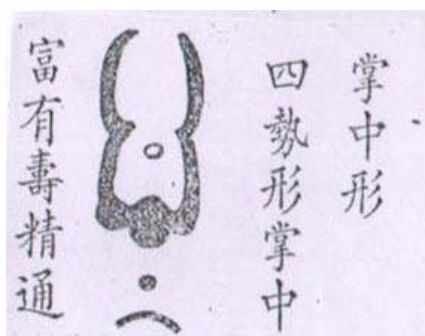 掌中形
四勢形掌中
富有壽精通